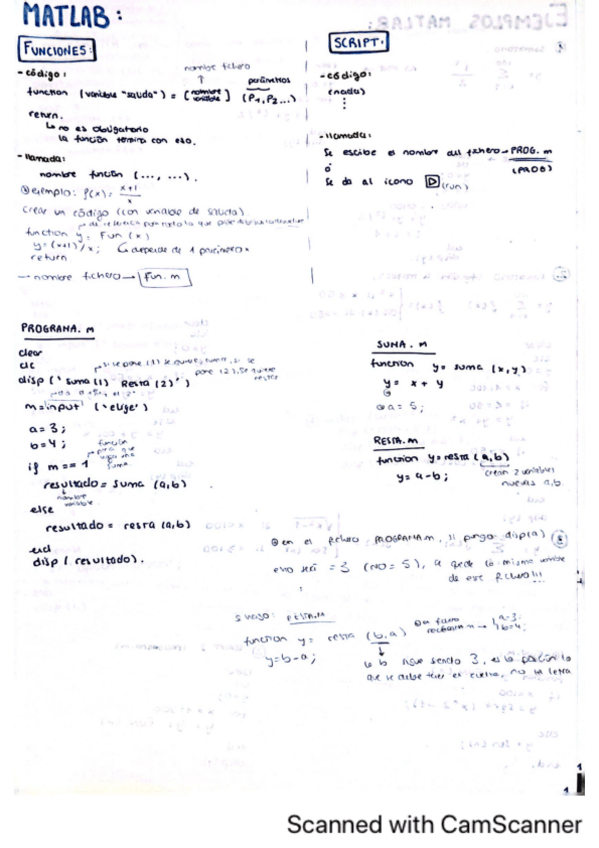 MATLAB:
FUNCIONES:
- código:
nombre fichero
parámetros
function (variable "salida") = [nombre variable] (P1, P2...)
return.
↳ no es obligatorio
la función termina con eso.
- llamada:
nombre función (..., ...).
ejemplo: f(x) = x+1/x
Crear un código (con variable de salida)
function y = Fun (x)
y = (x+1)/x; ↳ depende de 1 parámetro x
return
— nombre fichero → fun.m
SCRIPT.
- código:
(nada)
⋮
- llamada:
Se escribe el nombre del fichero → PROG.m
ó (PROG)
Se da al icono ▷ (run)
PROGRAMA.m
clear
clc
si se pone (1) se quiere sumar, si se
pone (2), se quiere
restar
disp (' Suma (1) Resta (2) ')
m = input ('elige')
a = 3;
b = 4;
if m == 1
resultado = suma (a,b)
nombre
variable
else
resultado = resta (a,b)
end
disp (resultado).
SUMA.m
function y = suma (x,y)
y = x + y
a = 5;
RESTA.m
function y = resta (a,b)
y = a - b;
crean 2 variables
nuevas a, b.
en el fichero PROGRAMA.m, si pongo disp(a)
eso será = 3 (NO = 5),
de ese fichero!!!
RESTA.M
function y = resta (b,a)
y = b - a;
a = 3;
b = 4;
↳ b sigue siendo 3, es la posición lo
que se debe tener en cuenta, no la letra
1
1
Scanned with CamScanner